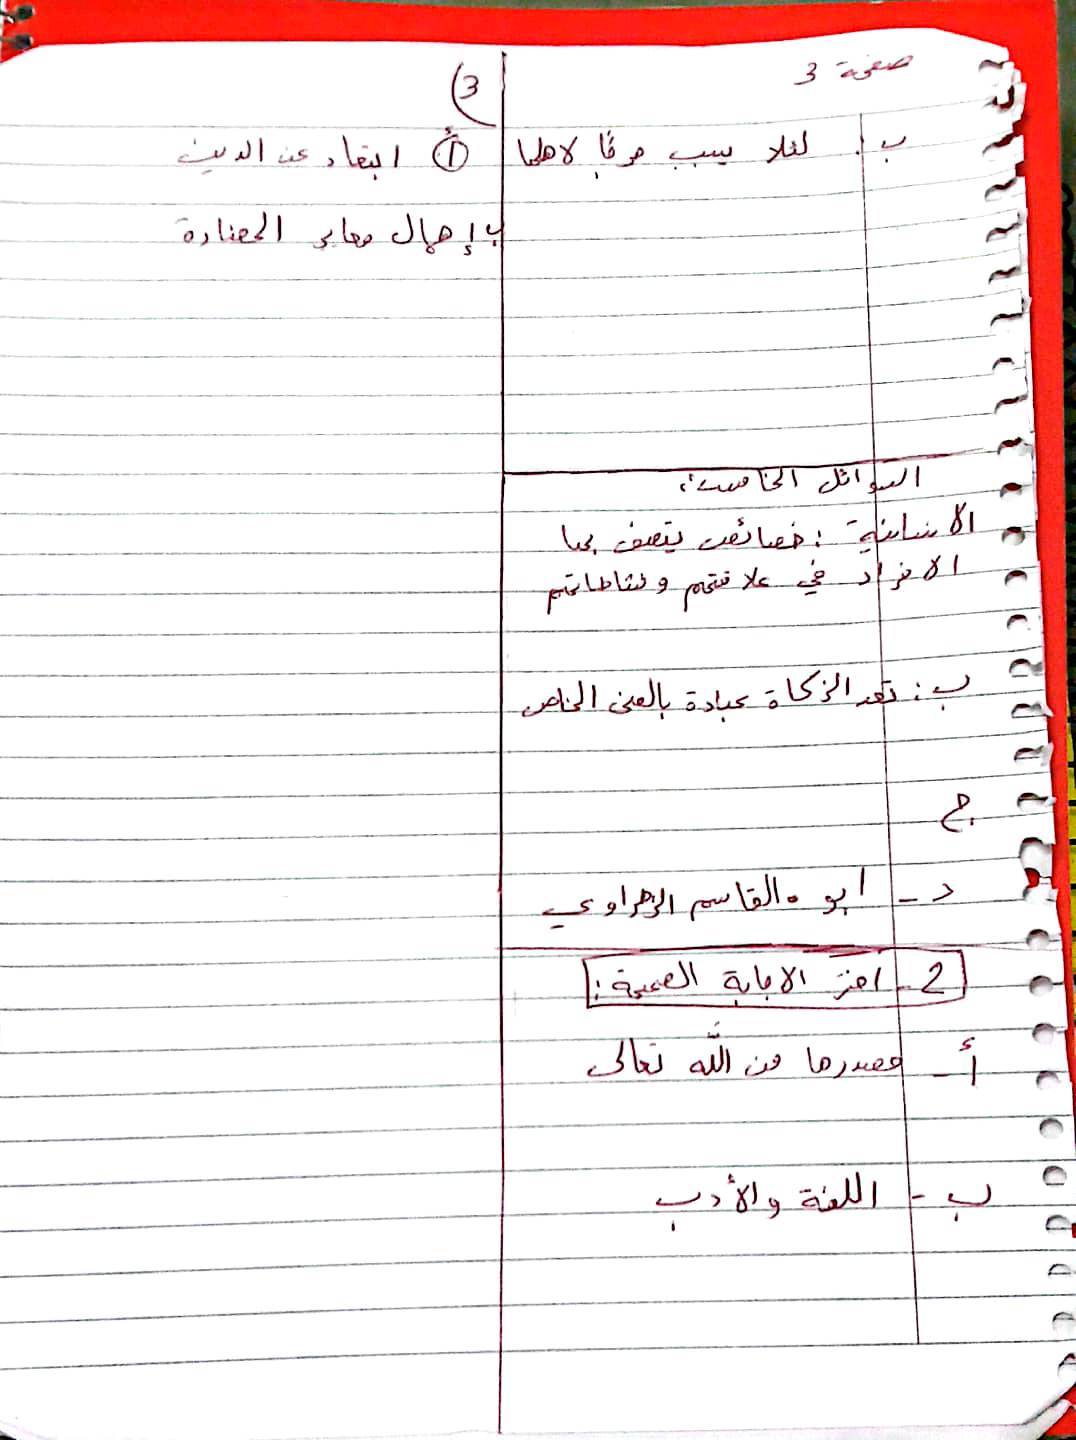 صفحة 3
ب: لئلا يسبب حرجًا لاهلها
السؤائل الخامس:
الانسانية: خصائص يتصف بها
الافراد في علاقتهم ونشاطاتهم
ب: تعد الزكاة عبادة بالمعنى الخاص
ج
د - ابو القاسم الزهراوي
2 - اختر الاجابة الصحيحة:
أ - مصدرها من الله تعالى
ب - اللغة والأدب
3)
أ ابتعاد عن الدين
ب إهمال معابر الحضارة